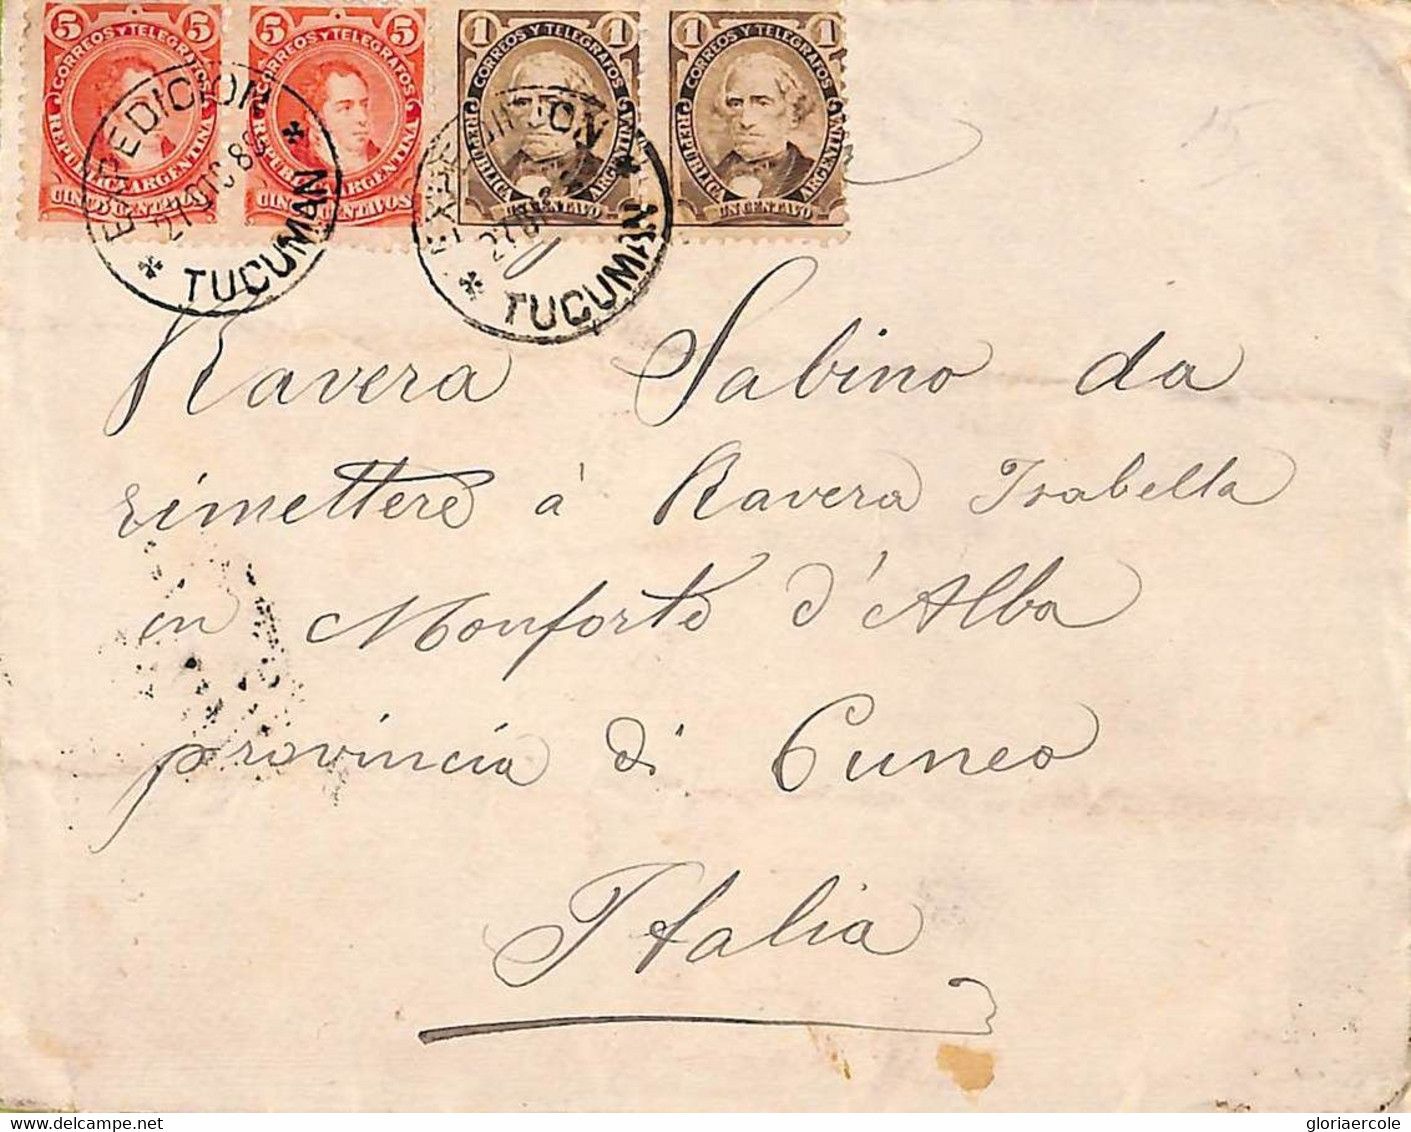 5 5 5 5 1 1 1 1
CORREOS Y TELEGRAFOS CORREOS Y TELEGRAFOS CORREOS Y TELEGRAFOS CORREOS Y TELEGRAFOS
REPUBLICA ARGENTINA REPUBLICA ARGENTINA REPUBLICA ARGENTINA REPUBLICA ARGENTINA
CINCO CENTAVOS CINCO CENTAVOS UN CENTAVO UN CENTAVO
EXPEDICION
27 OTC 89
TUCUMAN
EXPEDICION
27
TUCUMAN
Ravera Sabino da
rimettere à Ravera Isabella
in Monforte d'Alba
provincia di Cuneo
Italia
gloriaercole